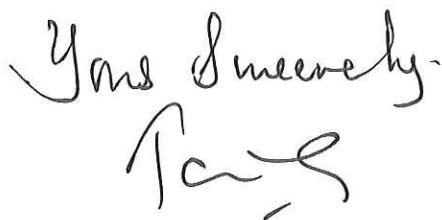 Yours Sincerely.